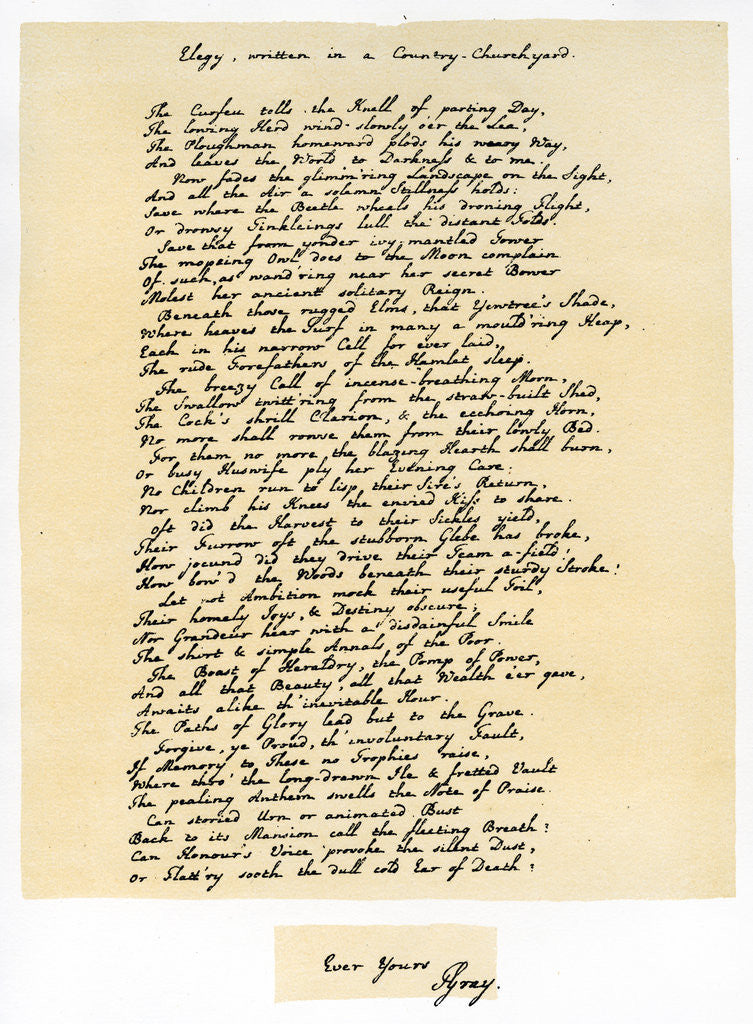 Elegy, written in a Country-Churchyard.
The Curfeu tolls the Knell of parting Day,
The lowing Herd wind slowly o'er the Lea,
The Ploughman homeward plods his weary Way,
And leaves the World to Darkness & to me.
Now fades the glimm'ring Landscape on the Sight,
And all the Air a solemn Stillness holds:
Save where the Beetle wheels his droning Flight,
Or drowsy Tinkleings lull the distant Folds.
Save that from yonder ivy-mantled Tower
The mopeing Owl does to the Moon complain
Of such, as wand'ring near her secret Bower
Molest her ancient solitary Reign.
Beneath those rugged Elms, that Yewtree's Shade,
Where heaves the Turf in many a mould'ring Heap,
Each in his narrow Cell for ever laid,
The rude Forefathers of the Hamlet sleep.
The breezy Call of incense-breathing Morn,
The Swallow twitt'ring from the straw-built Shed,
The Cock's shrill Clarion, & the ecchoing Horn,
No more shall rowse them from their lowly Bed.
For them no more the blazing Hearth shall burn,
Or busy Huswife ply her Evening Care:
No Children run to lisp their Sire's Return,
Nor climb his Knees the envied Kiss to share.
Oft did the Harvest to their Sickles yield,
Their Furrow oft the stubborn Glebe has broke,
How jocund did they drive their Team a-field!
How bow'd the Woods beneath their sturdy Stroke!
Let not Ambition mock their useful Toil,
Their homely Joys, & Destiny obscure;
Nor Grandeur hear with a disdainful Smile
The short & simple Annals of the Poor.
The Boast of Heraldry, the Pomp of Power,
And all that Beauty, all that Wealth e'er gave,
Awaits alike th' inevitable Hour.
The Paths of Glory lead but to the Grave.
Forgive, ye Proud, th' involuntary Fault,
If Memory to These no Trophies raise,
Where thro' the long-drawn Ile & fretted Vault
The pealing Anthem swells the Note of Praise.
Can storied Urn or animated Bust
Back to its Mansion call the fleeting Breath?
Can Honour's Voice provoke the silent Dust,
Or Flatt'ry sooth the dull cold Ear of Death?
Ever Yours
TGray.